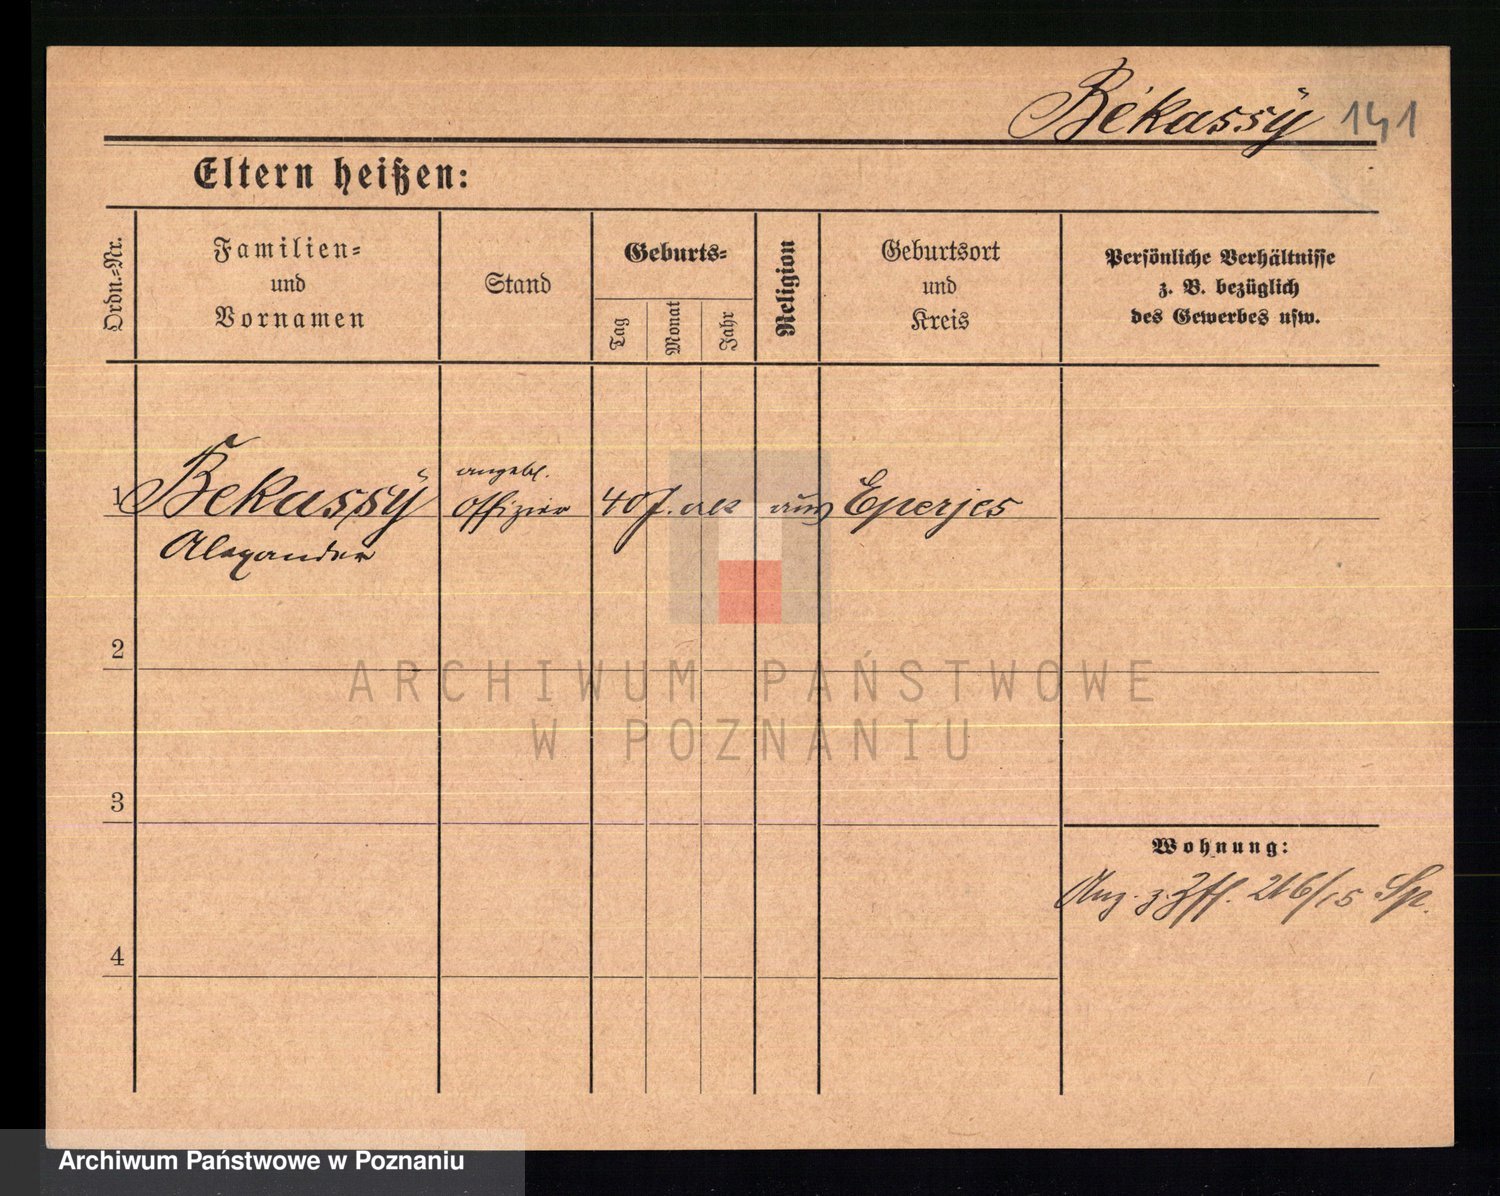 Békassÿ 141
Eltern heißen:
Ordn.-Nr.
Familien-
und
Vornamen
Stand
Geburts-
Tag
Monat
Jahr
Religion
Geburtsort
und
Kreis
Persönliche Verhältnisse
z. B. bezüglich
des Gewerbes usw.
angebl.
1 Bekassÿ Offizier 40 J. alt aus Eperjes
Alexander
2
ARCHIWUM PAŃSTWOWE
W POZNANIU
3
Wohnung:
216/15 Sp.
4
Archiwum Państwowe w Poznaniu